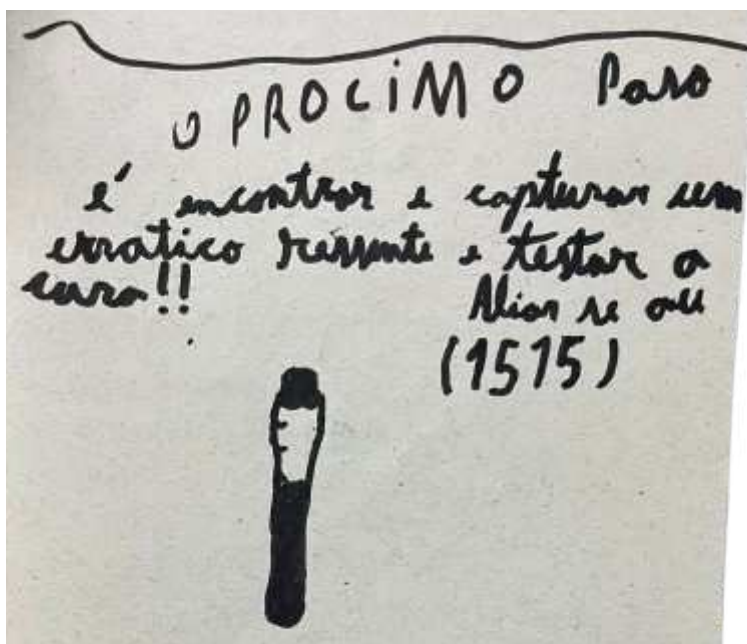 O PROCIMO Paso
é encontrar e capturar um
erratico ressente e testar a
cura!!
(1515)